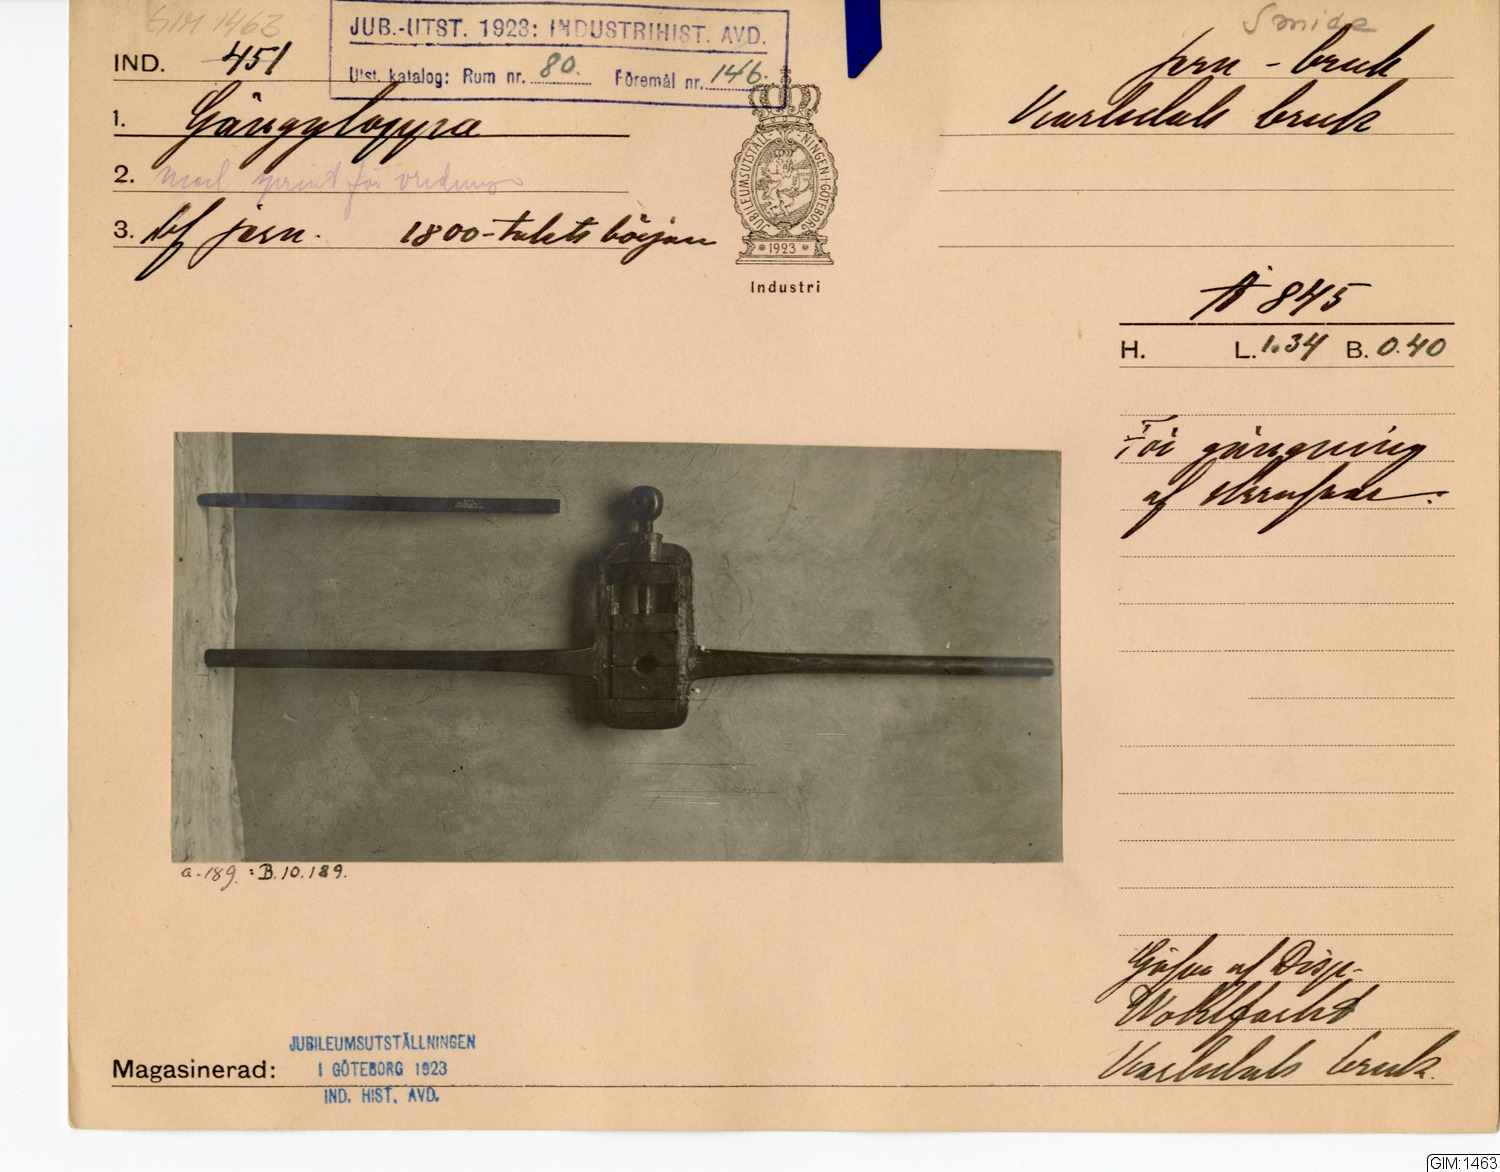 GIM 1463
Smide
JUB.-UTST. 1923: INDUSTRIHIST. AVD.
Utst. katalog: Rum nr. 80. Föremål nr. 146.
IND. 451
jern - bruk
1. Gängkloppa
bruk
2. med sprint för vridning
3. Af jern. 1800-talets början
JUBILEUMSUTSTÄLLNINGEN I GÖTEBORG
1923
Industri
A 845
H. L. 1.34 B. 0.40
För gängning
af
a-189. : B.10.189.
Gåfva af Disp.
Wohlfacht
bruk.
JUBILEUMSUTSTÄLLNINGEN
I GÖTEBORG 1923
IND. HIST. AVD.
Magasinerad:
GIM:1463